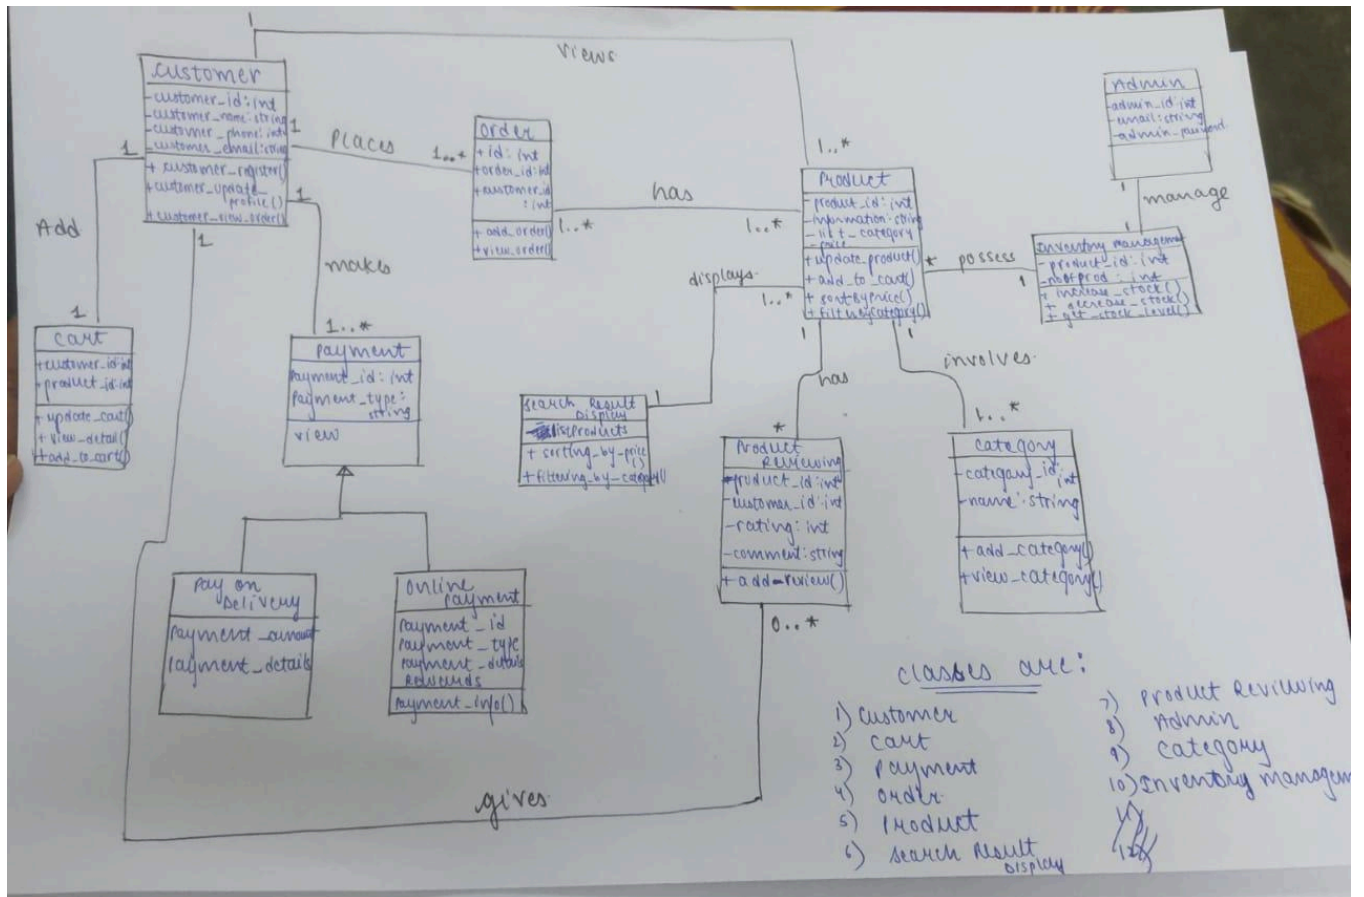 1
views
Customer
-customer_id:int
-customer_name:string
-customer_phone:int
-customer_email:string
+ customer_register()
+customer_update_
profile()
+customer_view_order()
1
1
1
1
Places
1..*
Add
makes
order
+id: int
+order_id:int
+customer_id
: int
+ add_order()
+view_order()
1..*
has
1..*
1..*
Product
-product_id: int
-information:string
-list_category
-price
+update_product()
+ add_to_cart()
+ sortByPrice()
+filterByCategory()
Admin
-admin_id:int
-email:string
-admin_password
1
manage
1
Inventory Management
-product_id: int
-noofprod: int
+ increase_stock()
+ decrease_stock()
+ get_stock_level()
*
possess
1
displays
1..*
1
1
1
cart
+customer_id:int
+product_id:int
+ update_cart()
+ view_detail()
+add_to_cart()
1..*
payment
payment_id: int
payment_type:
string
view
1
Search Result
Display
listproducts
+ sorting_by_price
()
+filtering_by_category()
has
*
involves
1..*
Product
Reviewing
-product_id:int
-customer_id:int
-rating: int
-comment:string
+ add_review()
0..*
category
-category_id:
int
-name:string
+ add_category()
+view_category()
Pay on
Delivery
payment_amount
payment_details
Online
Payment
payment_id
payment_type
payment_details
Rewards
payment_info()
gives
classes are:
1) Customer
2) cart
3) payment
4) order
5) Product
6) Search Result
Display
7) Product Reviewing
8) Admin
9) Category
10) Inventory managem